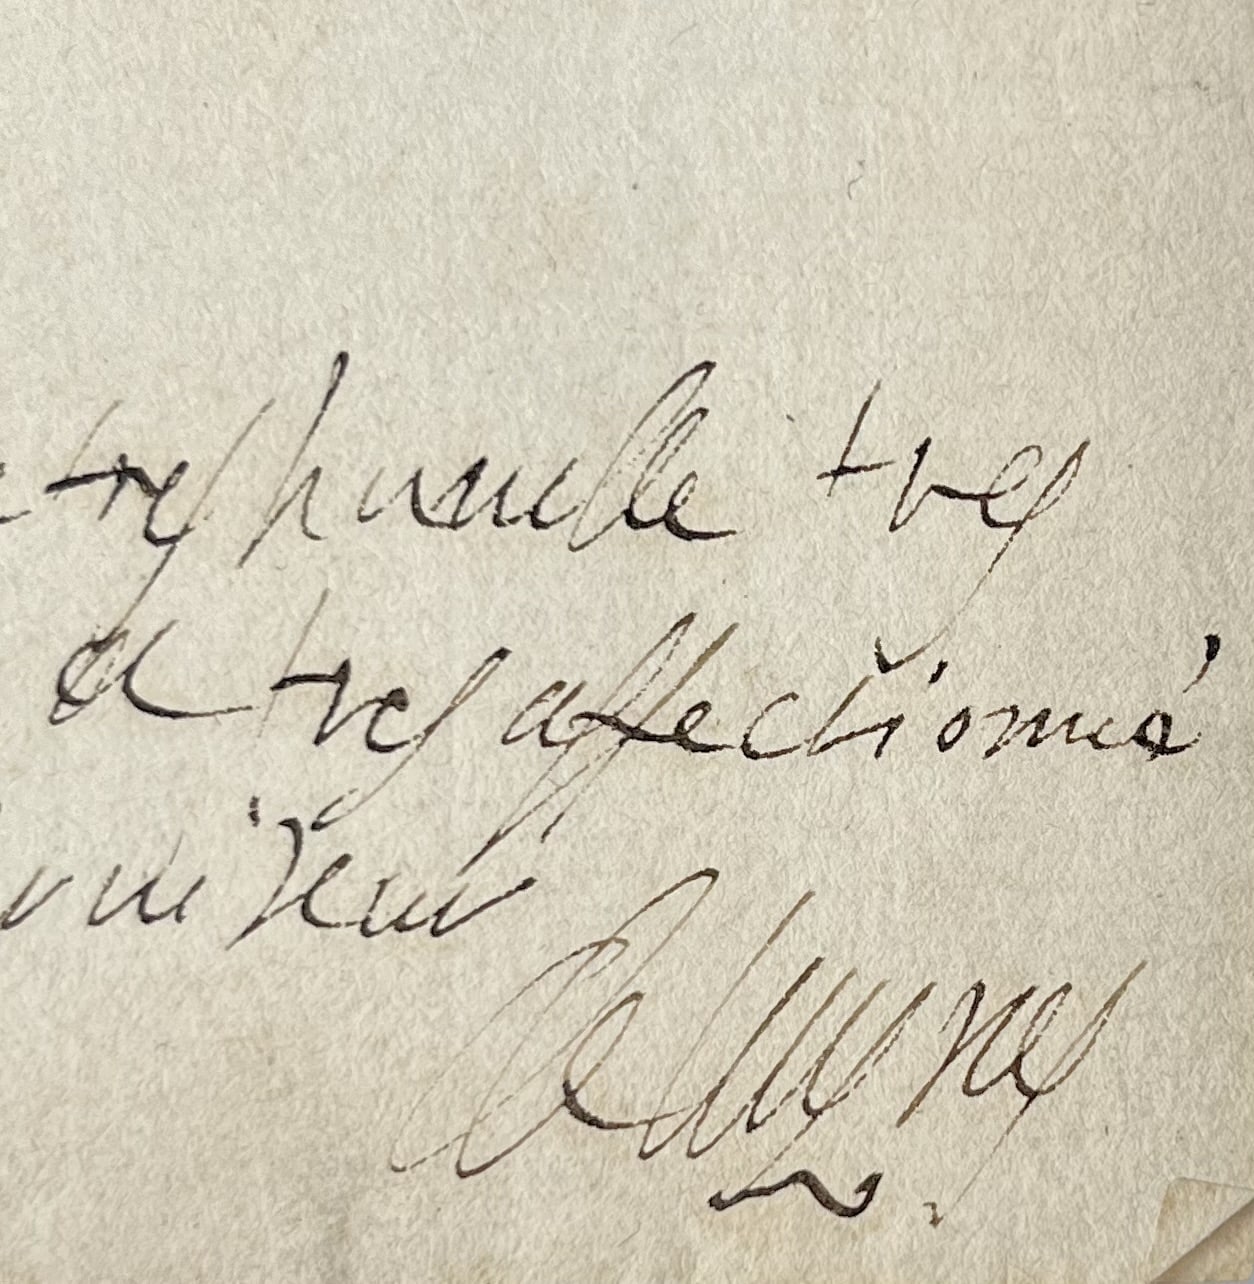 tres humble tres
et tres affectionné
serviteur
de Luynes